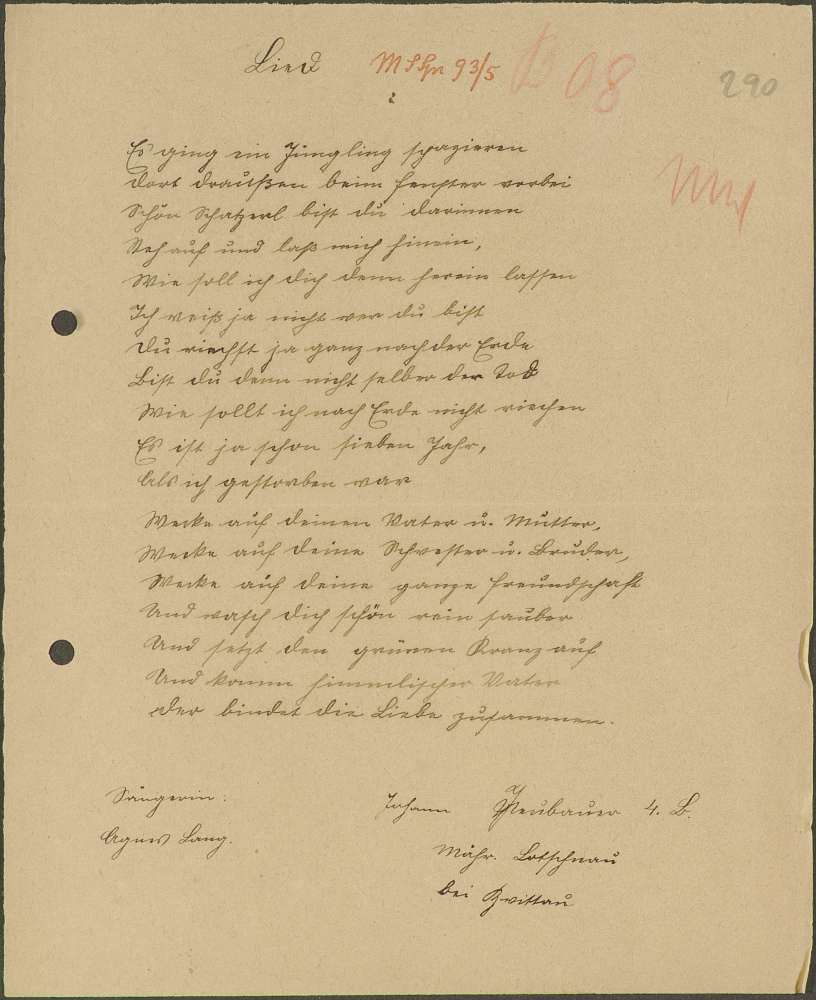 Lied
290
Es ging ein Jüngling spazieren
Dort draußen beim Fenster vorbei
Schön Schatzerl bist du darinnen
Steh auf und laß mich hinein,
Wie soll ich dich denn herein lassen
Ich weiß ja nicht wer du bist
Du riechst ja ganz nach der Erde
Bist du denn nicht selber der Tod
Wie sollt ich nach Erde nicht riechen
Es ist ja schon sieben Jahr,
Als ich gestorben war
Wecke auf deinen Vater u. Mutter,
Wecke auf deine Schwester u. Bruder,
Wecke auf deine ganze Freundschaft
Und wasch dich schön rein sauber
Und setzt den grünen Kranz auf
Und komm himmlischer Vater
Der bindet die Liebe zusammen.
Sängerin:
Agnes Lang.
Johann Neubauer 4. B.
Mähr. Lotschnau
bei Zwittau